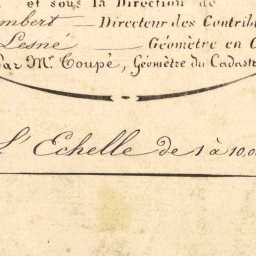 et sous la Direction de
mbert — Directeur des Contrib
Lesné — Géomètre en C
Par Mr. Toupé, Géomètre du Cadastr
L'Echelle de 1 à 10,0